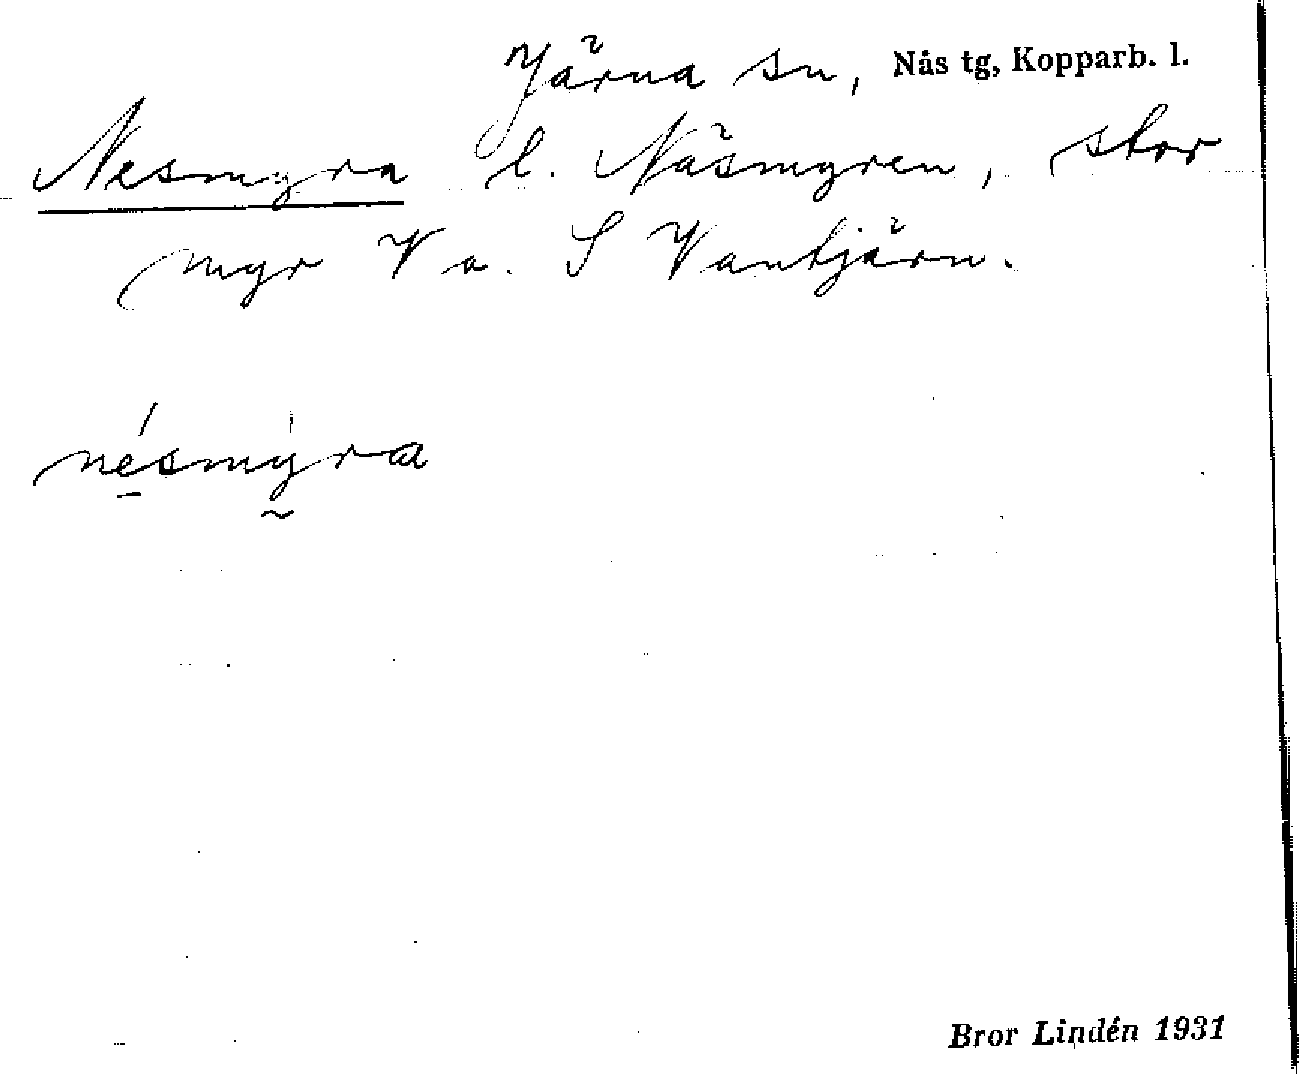 Järna sn, Nås tg, Kopparb. l.
Nesmyra l. Näsmyren, stor
myr V o. S Vantjärn.
nésmýra
Bror Lindén 1931